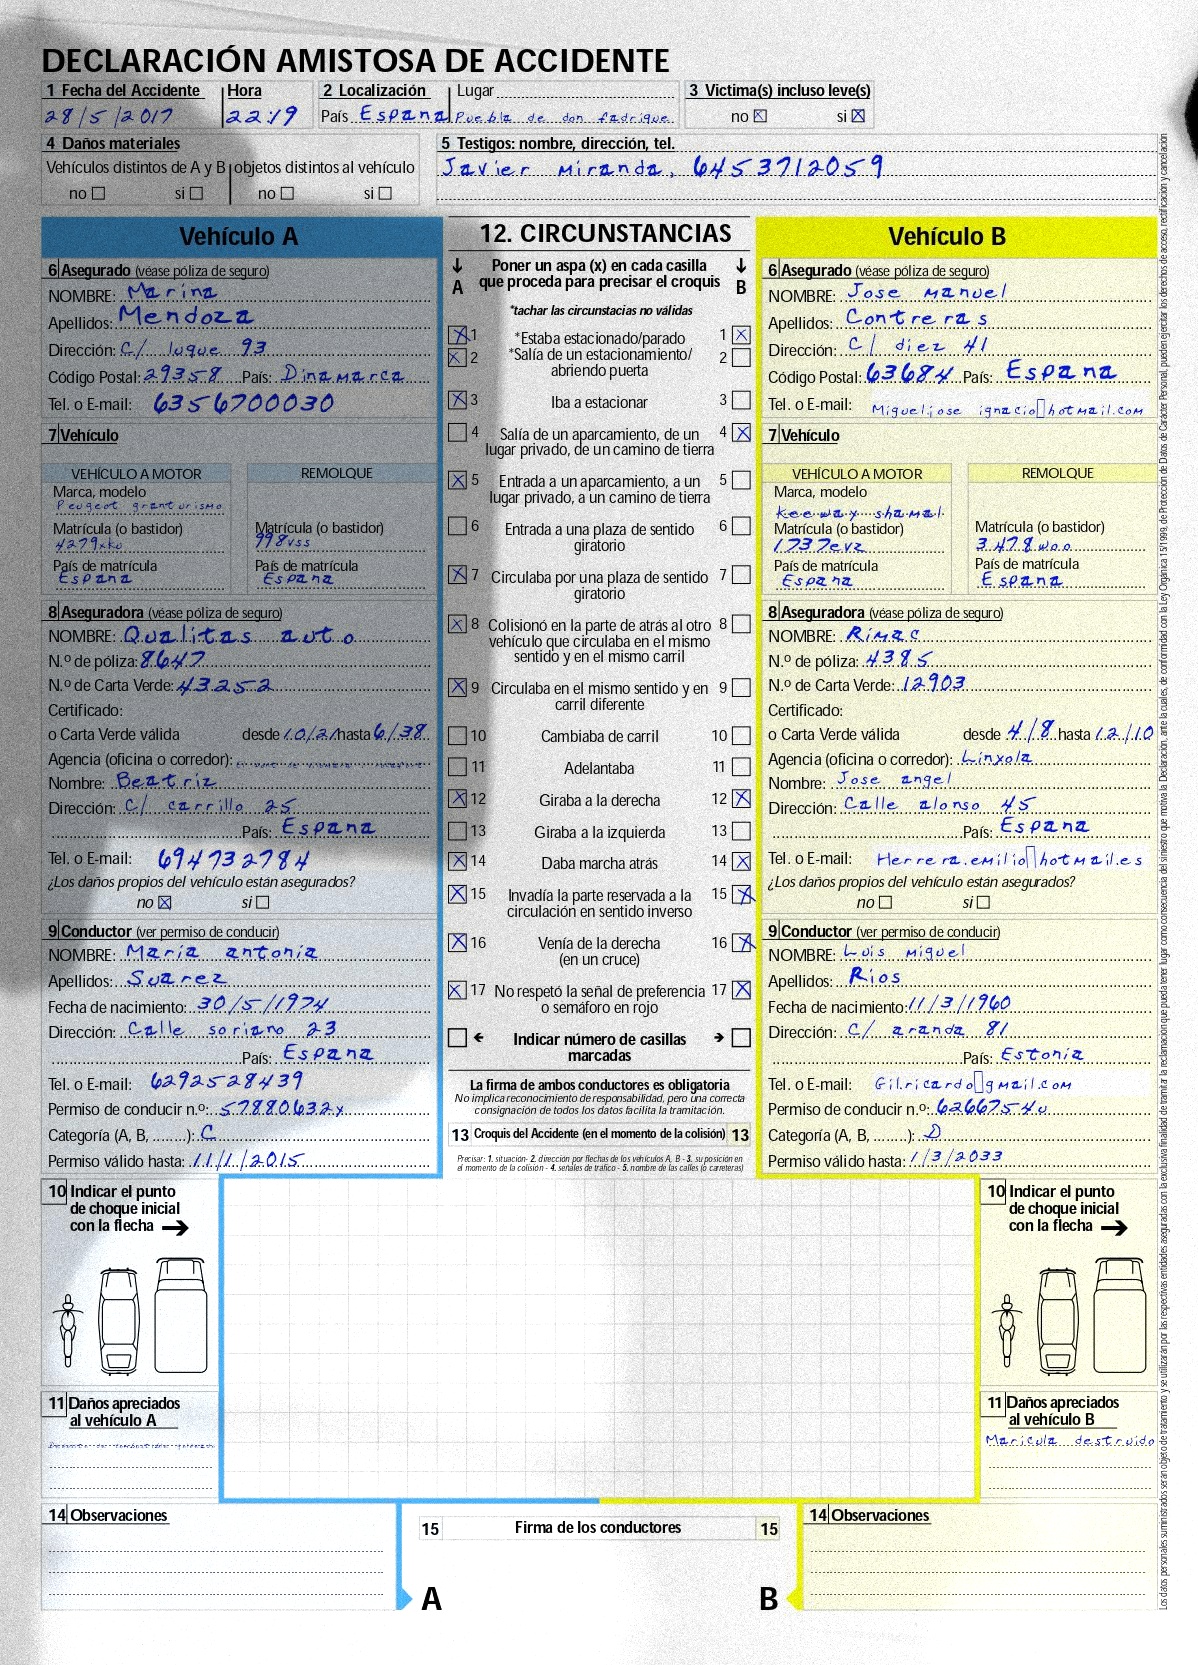 DECLARACIÓN AMISTOSA DE ACCIDENTE
1 Fecha del Accidente Hora 2 Localización Lugar 3 Victima(s) incluso leve(s)
28/5/2017 22:19 País Espana Puebla de don fadrique no si
4 Daños materiales 5 Testigos: nombre, dirección, tel.
Vehículos distintos de A y B objetos distintos al vehículo Javier Miranda, 6453712059
no si no si
Vehículo A
6 Asegurado (véase póliza de seguro)
NOMBRE: Marina
Apellidos: Mendoza
Dirección: C/ luque 93
Código Postal: 29358 País: Dinamarca
Tel. o E-mail: 6356700030
7 Vehículo
VEHÍCULO A MOTOR REMOLQUE
Marca, modelo
Peugeot granturismo
Matrícula (o bastidor) Matrícula (o bastidor)
4279xku 998vss
País de matrícula País de matrícula
Espana Espana
8 Aseguradora (véase póliza de seguro)
NOMBRE: Qualitas auto
N.º de póliza: 8647
N.º de Carta Verde: 43252
Certificado:
o Carta Verde válida desde 10/21 hasta 6/38
Agencia (oficina o corredor):
Nombre: Beatriz
Dirección: C/ carrillo 25
País: Espana
Tel. o E-mail: 694732784
¿Los daños propios del vehículo están asegurados?
no si
9 Conductor (ver permiso de conducir)
NOMBRE: María antonia
Apellidos: Suarez
Fecha de nacimiento: 30/5/1974
Dirección: Calle soriano 23
País: Espana
Tel. o E-mail: 6292528439
Permiso de conducir n.º: 57880632x
Categoría (A, B, ........): C
Permiso válido hasta: 11/1/2015
12. CIRCUNSTANCIAS
A Poner un aspa (x) en cada casilla B
que proceda para precisar el croquis
*tachar las circunstacias no válidas
1 *Estaba estacionado/parado 1
2 *Salía de un estacionamiento/ 2
abriendo puerta
3 Iba a estacionar 3
4 Salía de un aparcamiento, de un 4
lugar privado, de un camino de tierra
5 Entrada a un aparcamiento, a un 5
lugar privado, a un camino de tierra
6 Entrada a una plaza de sentido 6
giratorio
7 Circulaba por una plaza de sentido 7
giratorio
8 Colisionó en la parte de atrás al otro 8
vehículo que circulaba en el mismo
sentido y en el mismo carril
9 Circulaba en el mismo sentido y en 9
carril diferente
10 Cambiaba de carril 10
11 Adelantaba 11
12 Giraba a la derecha 12
13 Giraba a la izquierda 13
14 Daba marcha atrás 14
15 Invadía la parte reservada a la 15
circulación en sentido inverso
16 Venía de la derecha 16
(en un cruce)
17 No respetó la señal de preferencia 17
o semáforo en rojo
Indicar número de casillas
marcadas
La firma de ambos conductores es obligatoria
No implica reconocimiento de responsabilidad, pero una correcta
consignación de todos los datos facilita la tramitación.
13 Croquis del Accidente (en el momento de la colisión) 13
Precisar: 1. situación- 2. dirección por flechas de los vehículos A, B - 3. su posición en
el momento de la colisión - 4. señales de tráfico - 5. nombre de las calles (o carreteras)
Vehículo B
6 Asegurado (véase póliza de seguro)
NOMBRE: Jose manuel
Apellidos: Contreras
Dirección: C/ diez 41
Código Postal: 63684 País: Espana
Tel. o E-mail: Migueljose ignacio hotmail.com
7 Vehículo
VEHÍCULO A MOTOR REMOLQUE
Marca, modelo
keeway shamal
Matrícula (o bastidor) Matrícula (o bastidor)
1737evz 3478woo
País de matrícula País de matrícula
Espana Espana
8 Aseguradora (véase póliza de seguro)
NOMBRE: Rimac
N.º de póliza: 4385
N.º de Carta Verde: 12903
Certificado:
o Carta Verde válida desde 4/8 hasta 12/10
Agencia (oficina o corredor): Linxola
Nombre: Jose angel
Dirección: Calle alonso 45
País: Espana
Tel. o E-mail: Herrera.emilio hotmail.es
¿Los daños propios del vehículo están asegurados?
no si
9 Conductor (ver permiso de conducir)
NOMBRE: Luis miguel
Apellidos: Rios
Fecha de nacimiento: 11/3/1960
Dirección: C/ aranda 81
País: Estonia
Tel. o E-mail: Gilricardo gmail.com
Permiso de conducir n.º: 6266754u
Categoría (A, B, ........): D
Permiso válido hasta: 1/3/2033
10 Indicar el punto
de choque inicial
con la flecha
10 Indicar el punto
de choque inicial
con la flecha
11 Daños apreciados
al vehículo A
11 Daños apreciados
al vehículo B
Maricula destruido
14 Observaciones
15 Firma de los conductores 15
A B
14 Observaciones